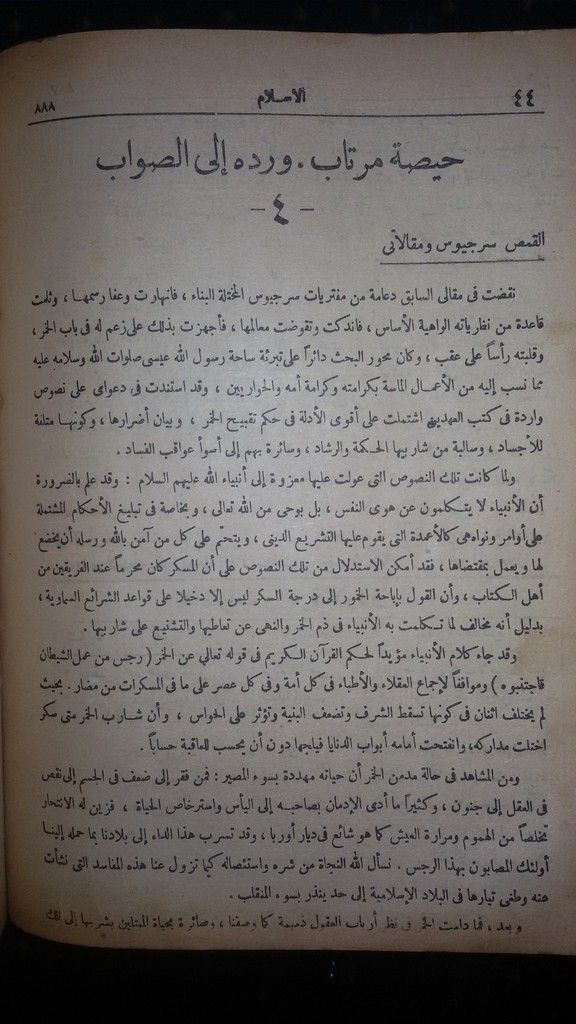 ٤٤ الاسلام ٨٨٨
حيصة مرتاب . ورده إلى الصواب
- ٤ -
القمص سرجيوس ومقالاتى
نقضت فى مقالى السابق دعامة من مفتريات سرجيوس المختلة البناء ، فانهارت وعفا رسمها ، وثلمت
قاعدة من نظرياته الواهية الأساس ، فاندكت وتقوضت معالمها ، فأجهزت بذلك على زعم له فى باب الخمر ،
وقلبته رأساً على عقب ، وكان محور البحث دائراً على تبرئة ساحة رسول الله عيسى صلوات الله وسلامه عليه
مما نسب إليه من الأعمال الماسة بكرامته وكرامة أمه والحواريين ، وقد استندت فى دعواى على نصوص
واردة فى كتب العهدين اشتملت على أقوى الأدلة فى حكم تقبيح الخمر ، وبيان أضرارها ، وكونها متلفة
للأجساد ، وسالبة من شاربيها الحكمة والرشاد ، وسائرة بهم إلى أسوأ عواقب الفساد .
ولما كانت تلك النصوص التى عولت عليها معزوة إلى أنبياء الله عليهم السلام : وقد علم بالضرورة
أن الأنبياء لا يتكلمون عن هوى النفس ، بل بوحى من الله تعالى ، وبخاصة فى تبليغ الأحكام المشتملة
على أوامر ونواه هى كالأعمدة التى يقوم عليها التشريع الدينى ، ويتحتم على كل من آمن بالله ورسله أن يخضع
لها ويعمل بمقتضاها ، فقد أمكن الاستدلال من تلك النصوص على أن المسكر كان محرماً عند الفريقين من
أهل الكتاب ، وأن القول بإباحة الخمور إلى درجة السكر ليس إلا دخيلا على قواعد الشرائع السماوية ،
بدليل أنه مخالف لما تكلمت به الأنبياء فى ذم الخمر والنهى عن تعاطيها والتشنيع على شاربيها .
وقد جاء كلام الأنبياء مؤيداً لحكم القرآن الكريم فى قوله تعالى عن الخمر ( رجس من عمل الشيطان
فاجتنبوه ) وموافقاً لإجماع العقلاء والأطباء فى كل أمة وفى كل عصر على ما فى المسكرات من مضار . بحيث
لم يختلف اثنان فى كونها تسقط الشرف وتضعف البنية وتؤثر على الحواس ، وأن شارب الخمر متى سكر
اختلت مداركه، وانفتحت أمامه أبواب الدنايا فيلجها دون أن يحسب للعاقبة حساباً .
ومن المشاهد فى حالة مدمن الخمر أن حياته مهددة بسوء المصير : فمن فقر إلى ضعف فى الجسم إلى نقص
فى العقل إلى جنون ، وكثيراً ما أدى الإدمان بصاحبه إلى اليأس واسترخاص الحياة ، فزين له الانتحار
تخلصاً من الهموم ومرارة العيش كما هو شائع فى ديار أوربا ، وقد تسرب هذا الداء إلى بلادنا بما حمله إلينا
أولئك المصابون بهذا الرجس . نسأل الله النجاة من شره واستئصاله كيما تزول عنا هذه المفاسد التى نشأت
عنه وطغى تيارها فى البلاد الإسلامية إلى حد ينذر بسوء المنقلب .
وبعد ، فما دامت الخمر فى نظر أرباب العقول ذميمة كما وصفنا ، وصائرة بحياة المبتلين بشربها إلى تلك